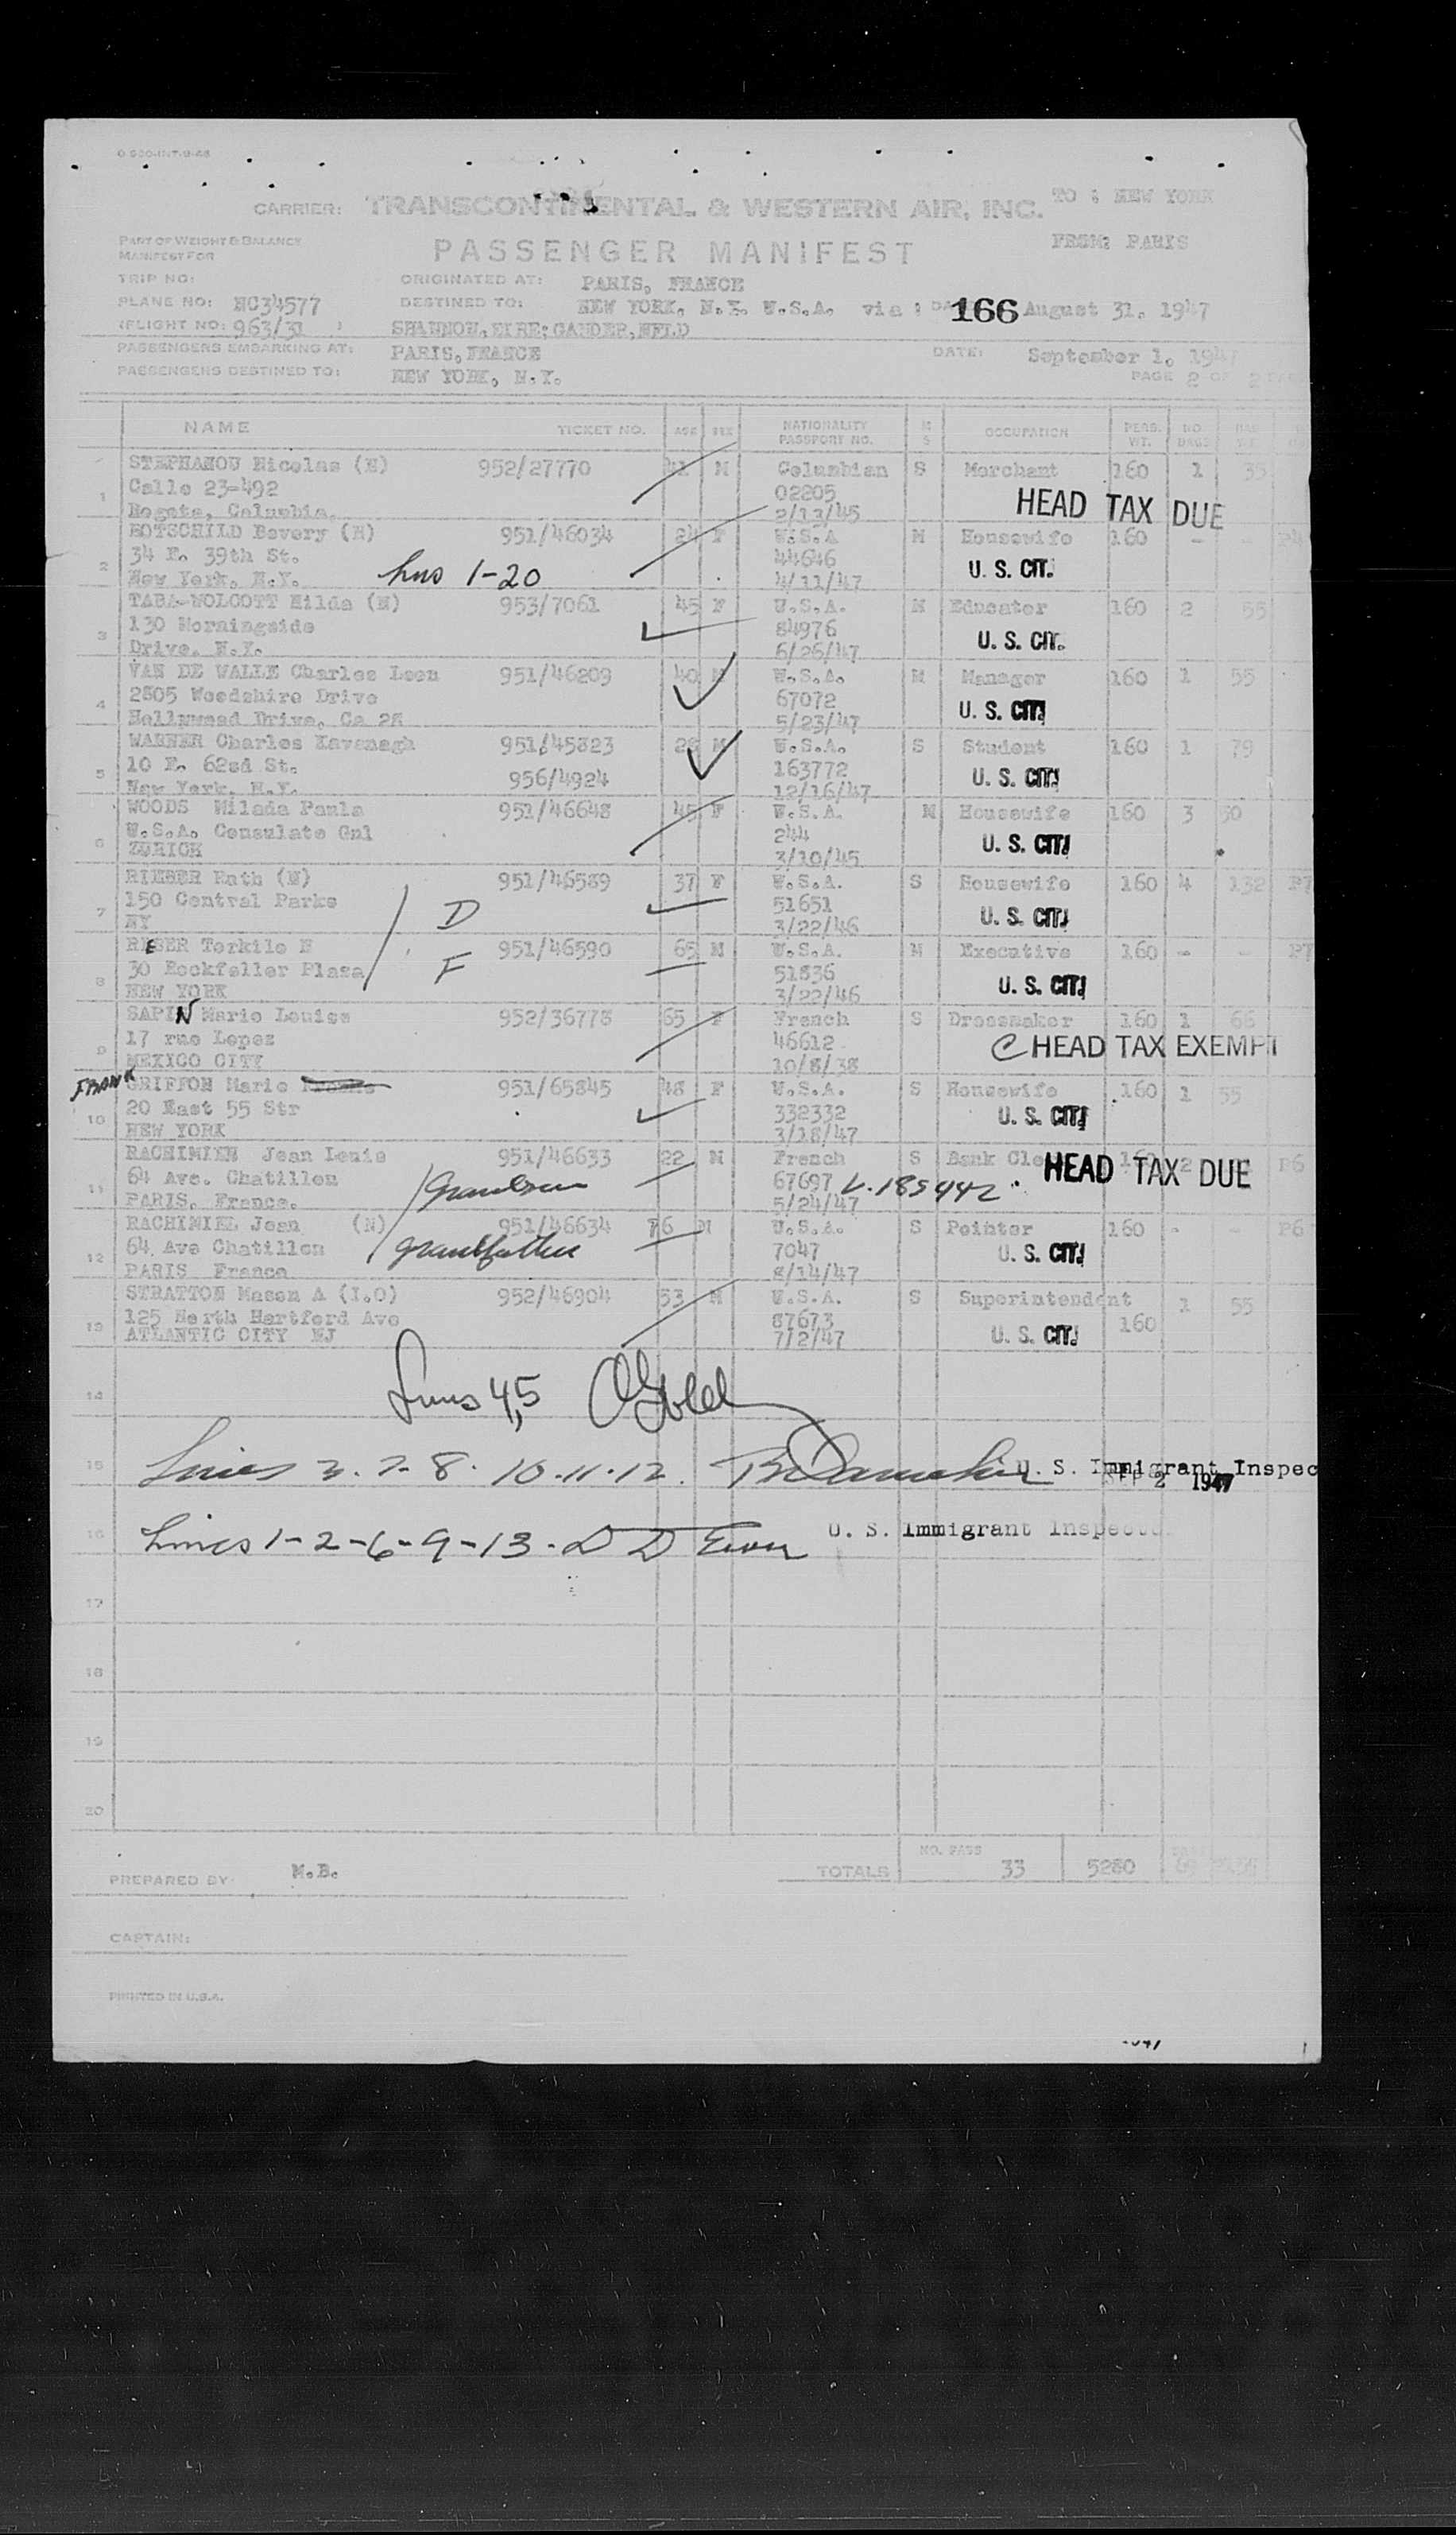 O 920-INT-9-46
CARRIER: TRANSCONTINENTAL & WESTERN AIR, INC. TO : NEW YORK
PART OF WEIGHT & BALANCE PASSENGER MANIFEST FROM: PARIS
MANIFEST FOR
TRIP NO: ORIGINATED AT: PARIS, FRANCE
PLANE NO: NC34577 DESTINED TO: NEW YORK, N.Y. U.S.A. via : 166 August 31, 1947
(FLIGHT NO: 963/31 ) SHANNON, EIRE; GANDER, NFLD
PASSENGERS EMBARKING AT: PARIS, FRANCE DATE: September 1, 1947
PASSENGERS DESTINED TO: NEW YORK, N.Y. PAGE 2 OF 2
NAME TICKET NO. AGE SEX NATIONALITY PASSPORT NO. M S OCCUPATION PERS. WT. NO. BAGS
STEPHANOU Nicolas (N) 952/27770 M Columbian S Merchant 160 1 35
Calle 23-492 02205 HEAD TAX DUE
1 Bogota, Columbia. 2/13/45
ROTSCHILD Bevery (N) 951/46034 24 F U.S.A M Housewife 160 - -
2 34 E. 39th St. 44646 U. S. CIT.
New York, N.Y. 1-20 4/11/47
TABA-WOLCOTT Hilda (N) 953/7061 45 F U.S.A. M Educator 160 2 55
3 130 Morningside 84976 U. S. CIT.
Drive. N.Y. 6/26/47
VAN DE WALLE Charles Leon 951/46209 40 M U.S.A. M Manager 160 1 55
4 2805 Woodshire Drive 67072 U. S. CIT.
Hollywood Drive, Ca 28 5/23/47
WARNER Charles Kavanagh 951/45823 M U.S.A. S Student 160 1 79
5 10 E. 62sd St. 956/4924 163772 U. S. CIT.
New York, N.Y. 12/16/47
WOODS Milada Paula 951/46648 45 F U.S.A. M Housewife 160 3 50
6 U.S.A. Consulate Gnl 244 U. S. CIT.
ZURICH 3/10/45
RIEBER Ruth (N) 951/46589 37 F U.S.A. S Housewife 160 4 132 P7
7 150 Central Parks D 51651 U. S. CIT.
NY 3/22/46
RIEBER Torkild N 951/46590 65 M U.S.A. M Executive 160 - - P7
8 30 Rockfeller Plaza F 51836 U. S. CIT.
NEW YORK 3/22/46
SAPIN Marie Louise 952/36778 65 F French S Dressmaker 160 1 66
9 17 rue Lopez 46612 C HEAD TAX EXEMPT
MEXICO CITY 10/8/38
FRANK GRIFFON Marie 951/65845 48 F U.S.A. S Housewife 160 1 55
10 20 East 55 Str 332332 U. S. CIT.
NEW YORK 3/18/47
RACHINIEL Jean Louis 951/46633 22 M French S Bank Cle 160 2 P6
11 64 Ave. Chatillon Grandson 67697 V. 185442 HEAD TAX DUE
PARIS, France. 5/24/47
RACHINIEL Jean (N) 951/46634 76 M U.S.A. S Pointer 160 - - P6
12 64 Ave Chatillon grandfather 7047 U. S. CIT.
PARIS France 8/14/47
STRATTON Mason A (I.O) 952/46904 53 M U.S.A. S Superintendent 1 55
13 125 North Hartford Ave 87673 U. S. CIT. 160
ATLANTIC CITY NJ 7/2/47
14 Lines 4,5 O Gold
15 Lines 3. 7. 8. 10. 11. 12. U. S. Immigrant Inspec
SEP 2 1947
16 Lines 1-2-6-9-13. U. S. Immigrant Inspector
17
18
19
20
TOTALS NO. PASS 33 5280
PREPARED BY M.B.
CAPTAIN:
PRINTED IN U.S.A.